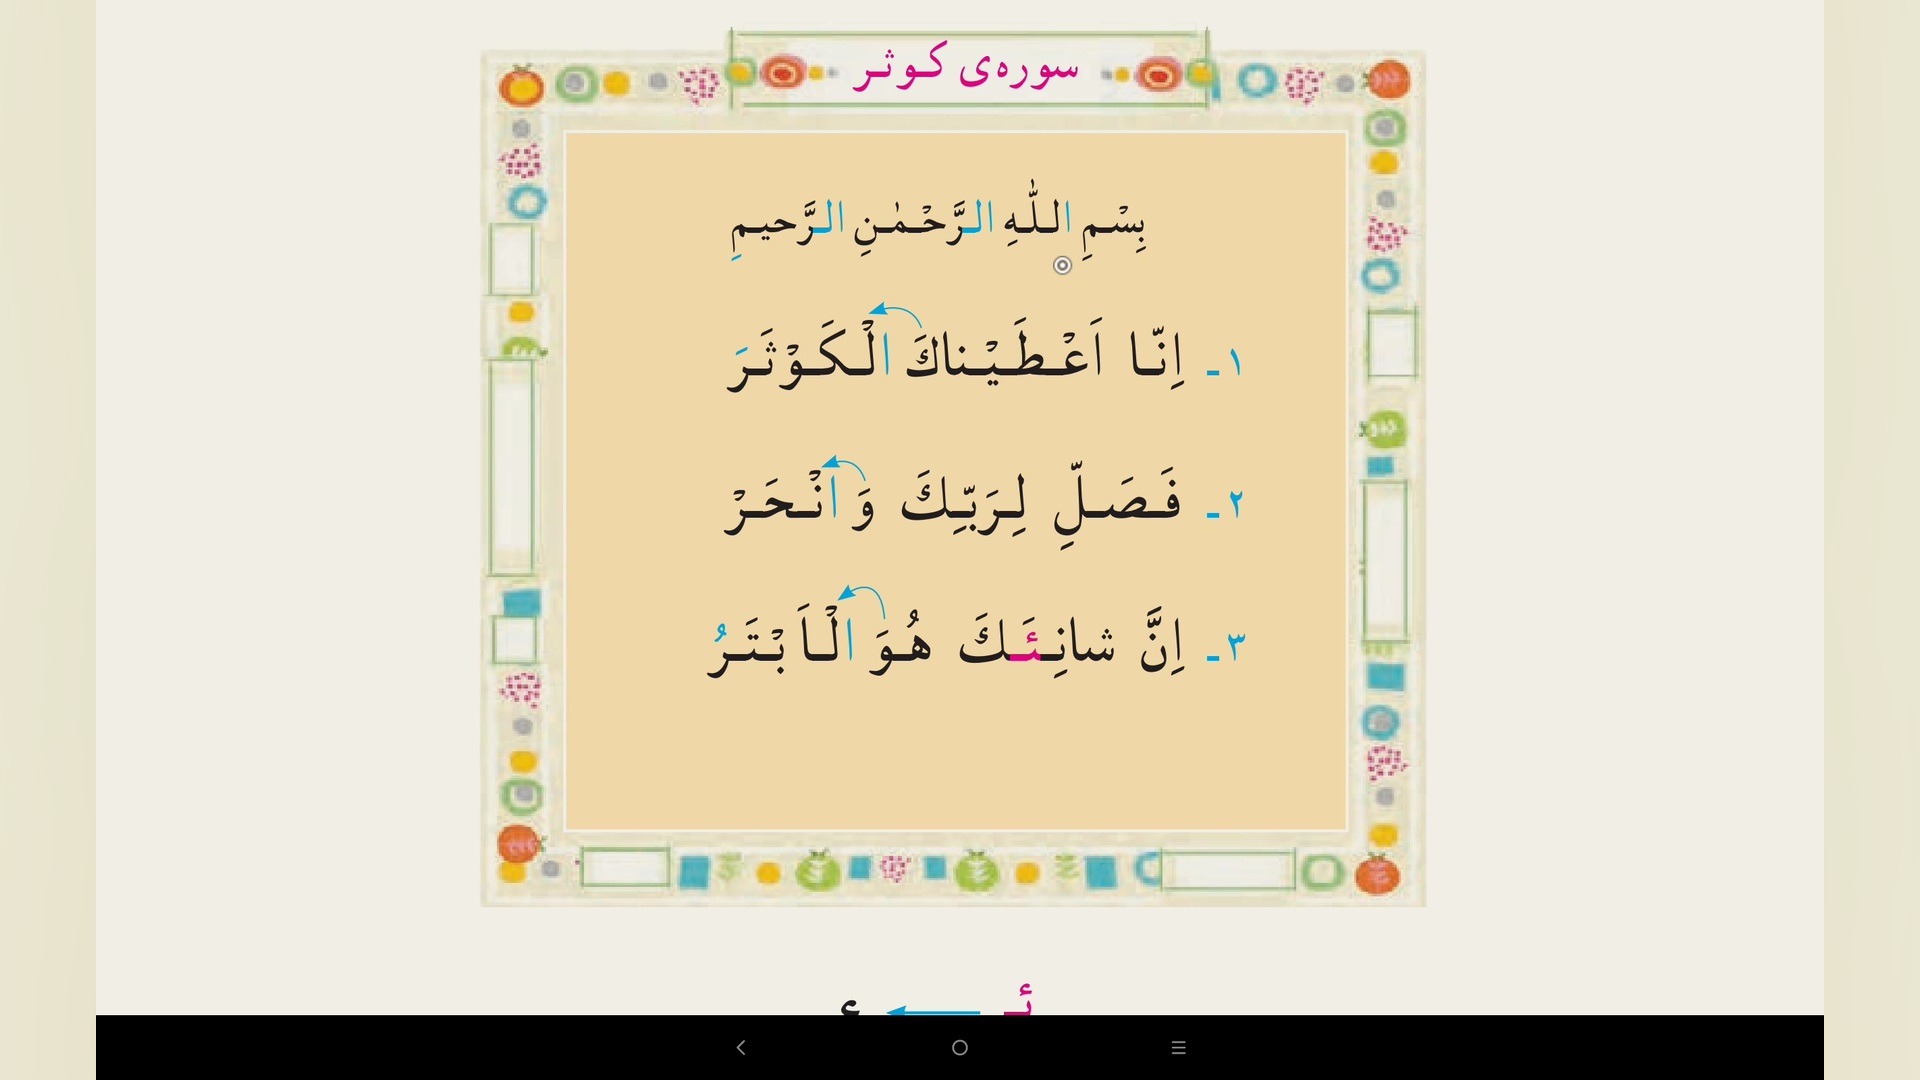 سوره‌ی کوثر
بِسْمِ اللّٰهِ الرَّحْمٰنِ الرَّحیمِ
۱ـ اِنّا اَعْطَیْناكَ الْکَوْثَرَ
۲ـ فَصَلِّ لِرَبِّكَ وَ انْحَرْ
۳ـ اِنَّ شانِئَكَ هُوَ الْاَبْتَرُ
ئـ ء